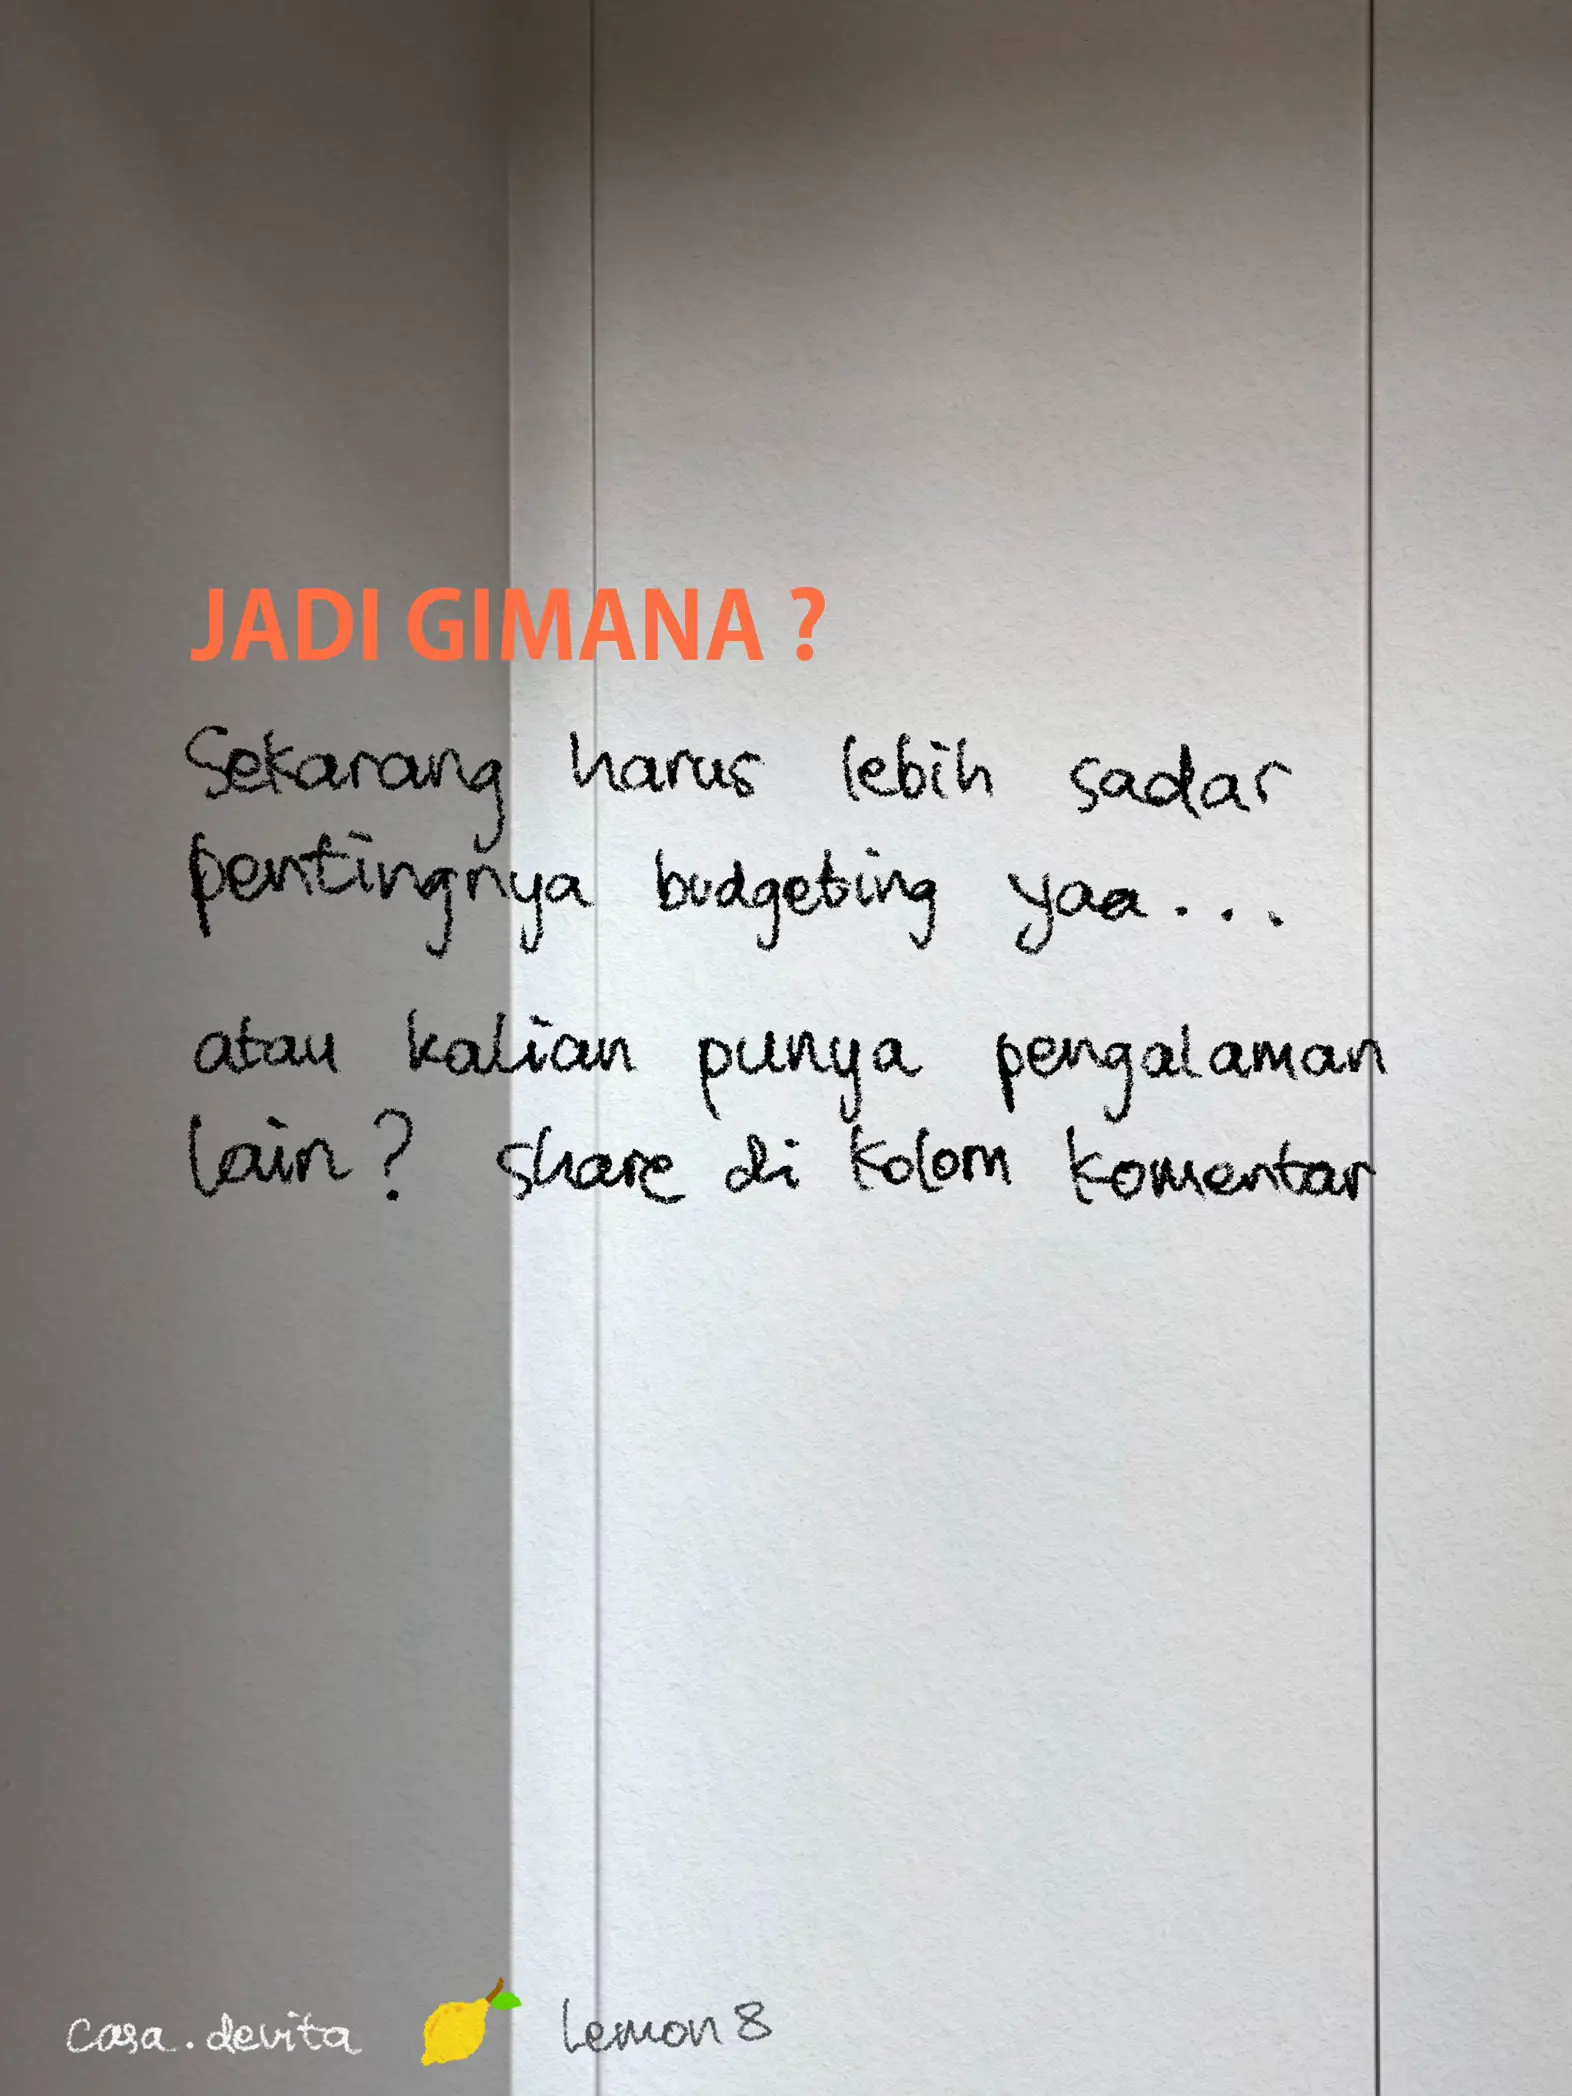 JADI GIMANA ?
Sekarang harus lebih sadar
pentingnya budgeting yaa...
atau kalian punya pengalaman
lain? share di kolom komentar
casa.devita lemon8